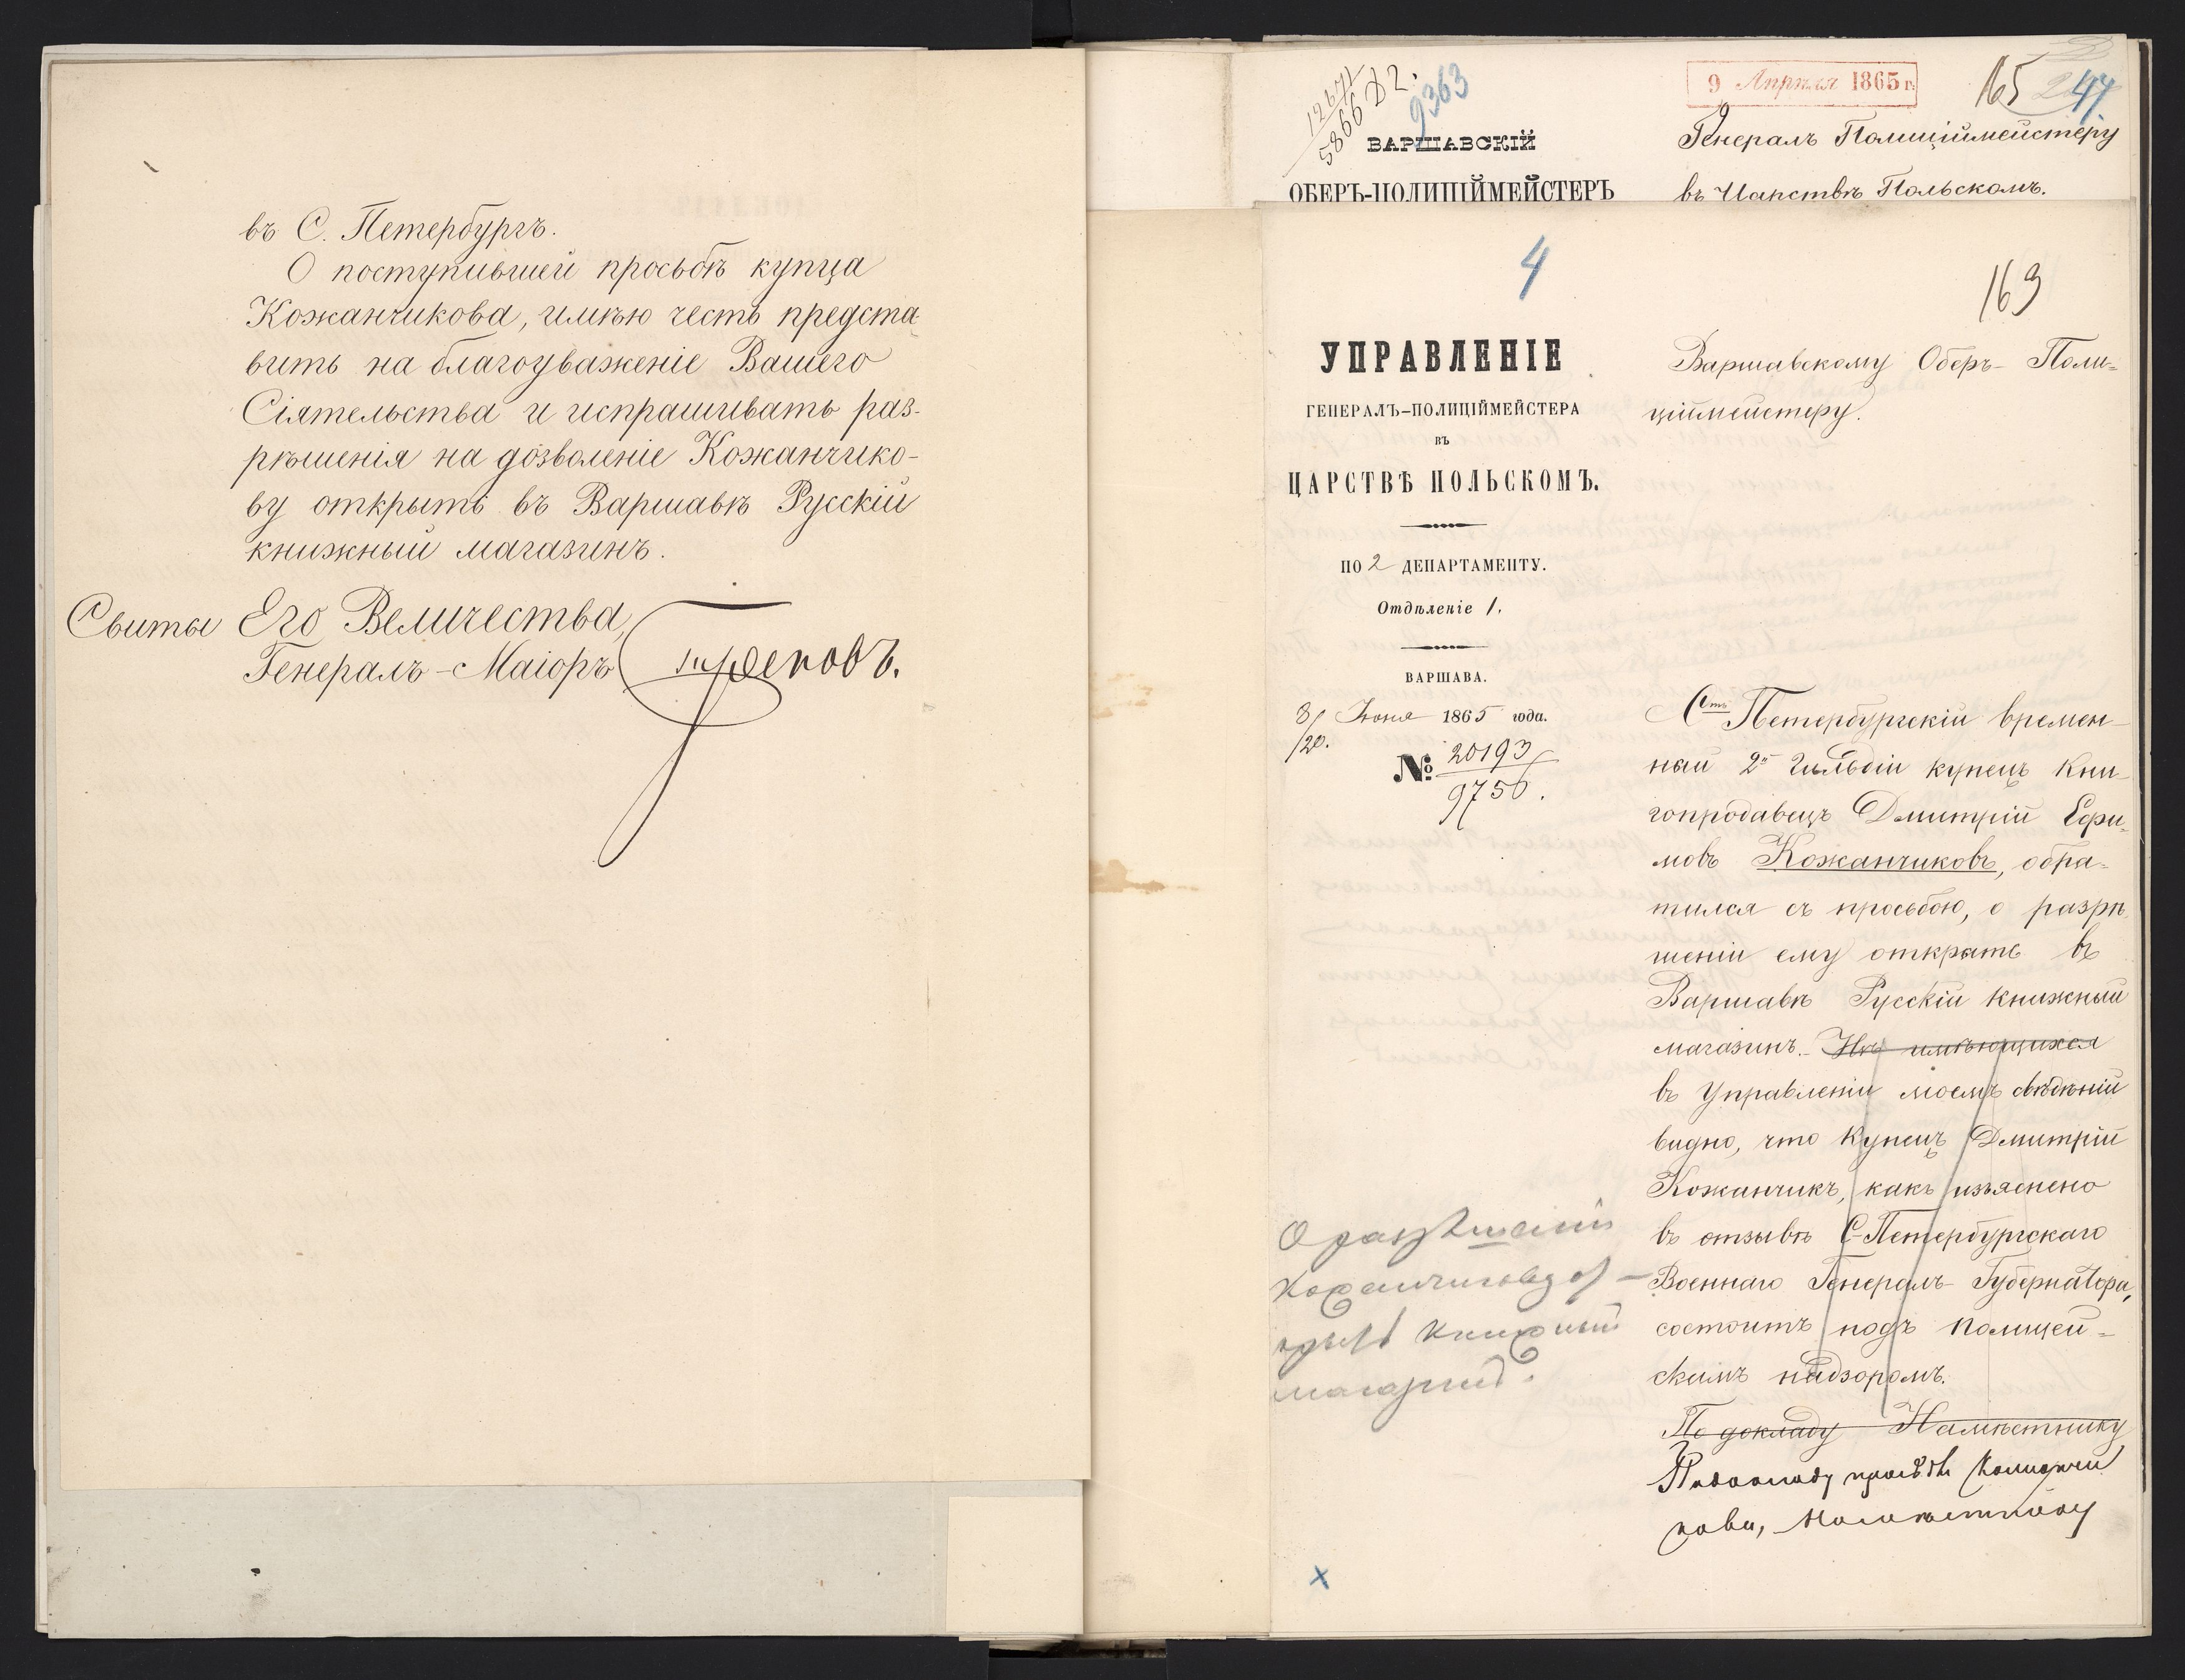 въ С. Петербургъ.
О поступившей просьбѣ купца
Кожанчикова, имѣю честь предста-
вить на благоуваженіе Вашего
Сіятельства и испрашивать раз-
рѣшенія на дозволеніе Кожанчико-
ву открыть въ Варшавѣ Русскій
книжный магазинъ.
Свиты Его Величества,
Генералъ-Маіоръ Треповъ.
12671
5866 Д2.
9363
9 Апрѣля 1865 г.
165
44
ВАРШАВСКІЙ
ОБЕРЪ-ПОЛИЦІЙМЕЙСТЕРЪ
Генералъ Полиціймейстеру
въ Царствѣ Польскомъ.
4
163
УПРАВЛЕНІЕ
ГЕНЕРАЛЪ-ПОЛИЦІЙМЕЙСТЕРА
ВЪ
ЦАРСТВѢ ПОЛЬСКОМЪ.
ПО 2 ДЕПАРТАМЕНТУ.
Отдѣленіе 1.
ВАРШАВА.
8/20. Іюня 1865 года.
№ 20193
9756.
Варшавскому Оберъ-Поли-
ціймейстеру.
Стъ Петербургскій времен-
ный 2й Гильдіи купецъ Кни-
гопродавецъ Дмитрій Ефи-
мовъ Кожанчиковъ, обра-
тился съ просьбою, о разрѣ-
шеніи ему открыть въ
Варшавѣ Русскій книжный
магазинъ. Изъ имѣющихся
въ Управленіи моемъ свѣдѣній
видно, что Купецъ Дмитрій
Кожанчикъ, какъ изъяснено
въ отзывѣ С-Петербургскаго
Военнаго Генералъ-Губернатора,
состоитъ подъ полицей-
скимъ надзоромъ.
По докладу Намѣстнику
По докладу просьбы Кожанчи
кова, Намѣстнику
О разрѣшеніи
Кожанчикову от-
крыть книжный
магазинъ.
x